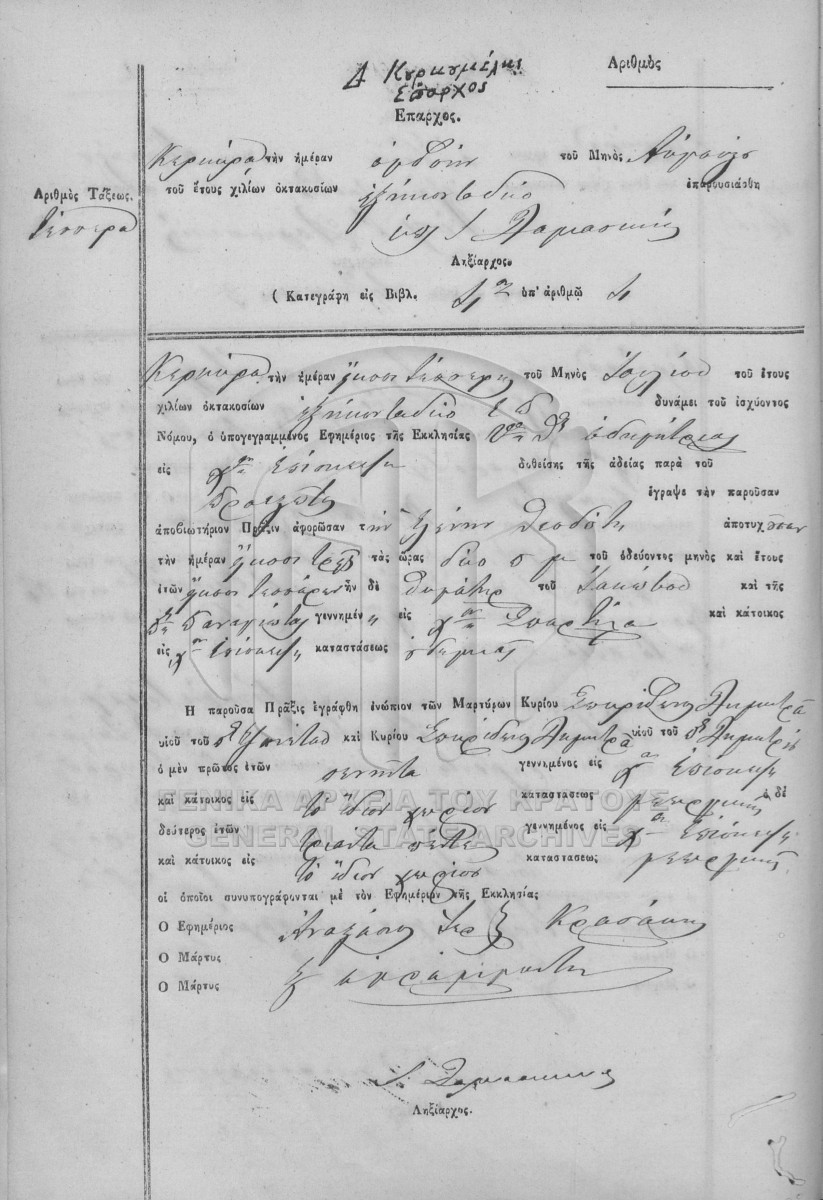 Αριθμὸς
Δ Κυρκυμέλης
Επαρχος
Επαρχος.
Κερκύρα τὴν ἡμέραν ὀγδόην τοῦ Μηνὸς Αὐγούστου
Αριθμὸς Τάξεως.
τοῦ ἔτους χιλίων ὀκτακοσίων ἑξήκοντα δύο ἐπαρουσιάσθη
τέσσερα
Δαμασκηνός
Ληξίαρχος.
( Κατεγράφη εἰς Βιβλ. ὑπ' ἀριθμῷ 4
Κερκύρα τὴν ἡμέραν εἴκοσι τέσσερες τοῦ Μηνὸς Ἰουλίου τοῦ ἔτους
χιλίων ὀκτακοσίων ἑξήκοντα δύο δυνάμει τοῦ ἰσχύοντος
Νόμου, ὁ ὑπογεγραμμένος Εφημέριος τῆς Εκκλησίας ὁδηγήτριας
εἰς Ἐπίσκεψι δοθείσης τῆς ἀδείας παρὰ τοῦ
Προεστῶτος ἔγραψε τὴν παροῦσαν
ἀποβιωτήριον Πρᾶξιν ἀφορῶσαν τὴν Ἑλένην Θεοδότη ἀποτυχοῦσαν
τὴν ἡμέραν εἴκοσι τρεῖς τὰς ὥρας δύο π μ τοῦ ὁδεύοντος μηνὸς καὶ ἔτους
ἐτῶν εἴκοσι τεσσάρων ἦν δὲ θυγάτηρ τοῦ Ἰακώβου καὶ τῆς
Παναγιώτας γεννημέν η εἰς Σπαρτίλα καὶ κάτοικος
εἰς Ἐπίσκεψι καταστάσεως
Η παροῦσα Πρᾶξις ἐγράφθη ἐνώπιον τῶν Μαρτύρων Κυρίου Σπυρίδωνος Δημητρᾶ
υἱοῦ τοῦ καὶ Κυρίου Σπυρίδωνος Δημητρᾶ υἱοῦ τοῦ Δημητρίου
ὁ μὲν πρῶτος ἐτῶν πενῆντα γεννημένος εἰς Ἐπίσκεψι
καὶ κάτοικος εἰς τὸ ἴδιον χωρίον καταστάσεως γεωργικῆς ὁ δὲ
δεύτερος ἐτῶν τριάντα πέντε γεννημένος εἰς Ἐπίσκεψι
καὶ κάτοικος εἰς τὸ ἴδιον χωρίον καταστάσεως γεωργικῆς
οἱ ὁποῖοι συνυπογράφονται μὲ τὸν Εφημέριον τῆς Εκκλησίας
Ο Εφημέριος Ἀναστάσιος Ἱερ Κρασάκης
Ο Μάρτυς
Ο Μάρτυς
Δαμασκηνός
Ληξίαρχος.
ΓΕΝΙΚΑ ΑΡΧΕΙΑ ΤΟΥ ΚΡΑΤΟΥΣ
GENERAL STATE ARCHIVES